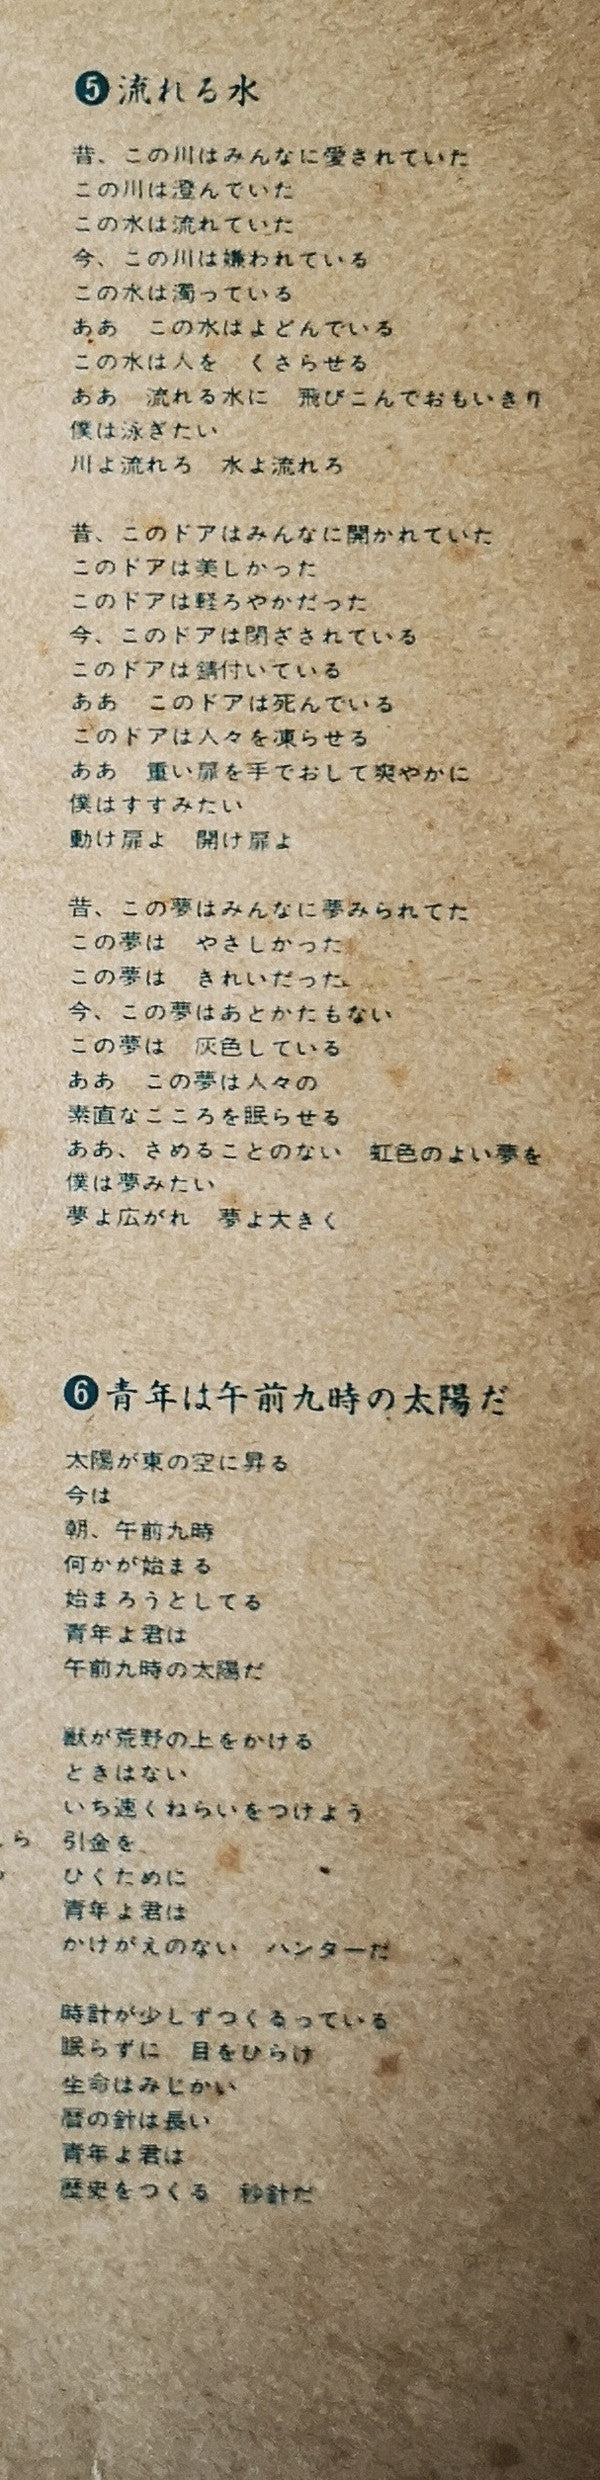 ❺流れる水
昔、この川はみんなに愛されていた
この川は澄んでいた
この水は流れていた
今、この川は嫌われている
この水は濁っている
ああ　この水はよどんでいる
この水は人を　くさらせる
ああ　流れる水に　飛びこんでおもいきり
僕は泳ぎたい
川よ流れろ　水よ流れろ
昔、このドアはみんなに開かれていた
このドアは美しかった
このドアは軽ろやかだった
今、このドアは閉ざされている
このドアは錆付いている
ああ　このドアは死んでいる
このドアは人々を凍らせる
ああ　重い扉を手でおして爽やかに
僕はすすみたい
動け扉よ　開け扉よ
昔、この夢はみんなに夢みられてた
この夢は　やさしかった
この夢は　きれいだった
今、この夢はあとかたもない
この夢は　灰色している
ああ　この夢は人々の
素直なこころを眠らせる
ああ、さめることのない　虹色のよい夢を
僕は夢みたい
夢よ広がれ　夢よ大きく
❻青年は午前九時の太陽だ
太陽が東の空に昇る
今は
朝、午前九時
何かが始まる
始まろうとしてる
青年よ君は
午前九時の太陽だ
獣が荒野の上をかける
ときはない
いち速くねらいをつけよう
引金を
ひくために
青年よ君は
かけがえのない　ハンターだ
時計が少しずつくるっている
眠らずに　目をひらけ
生命はみじかい
暦の針は長い
青年よ君は
歴史をつくる　秒針だ
ら